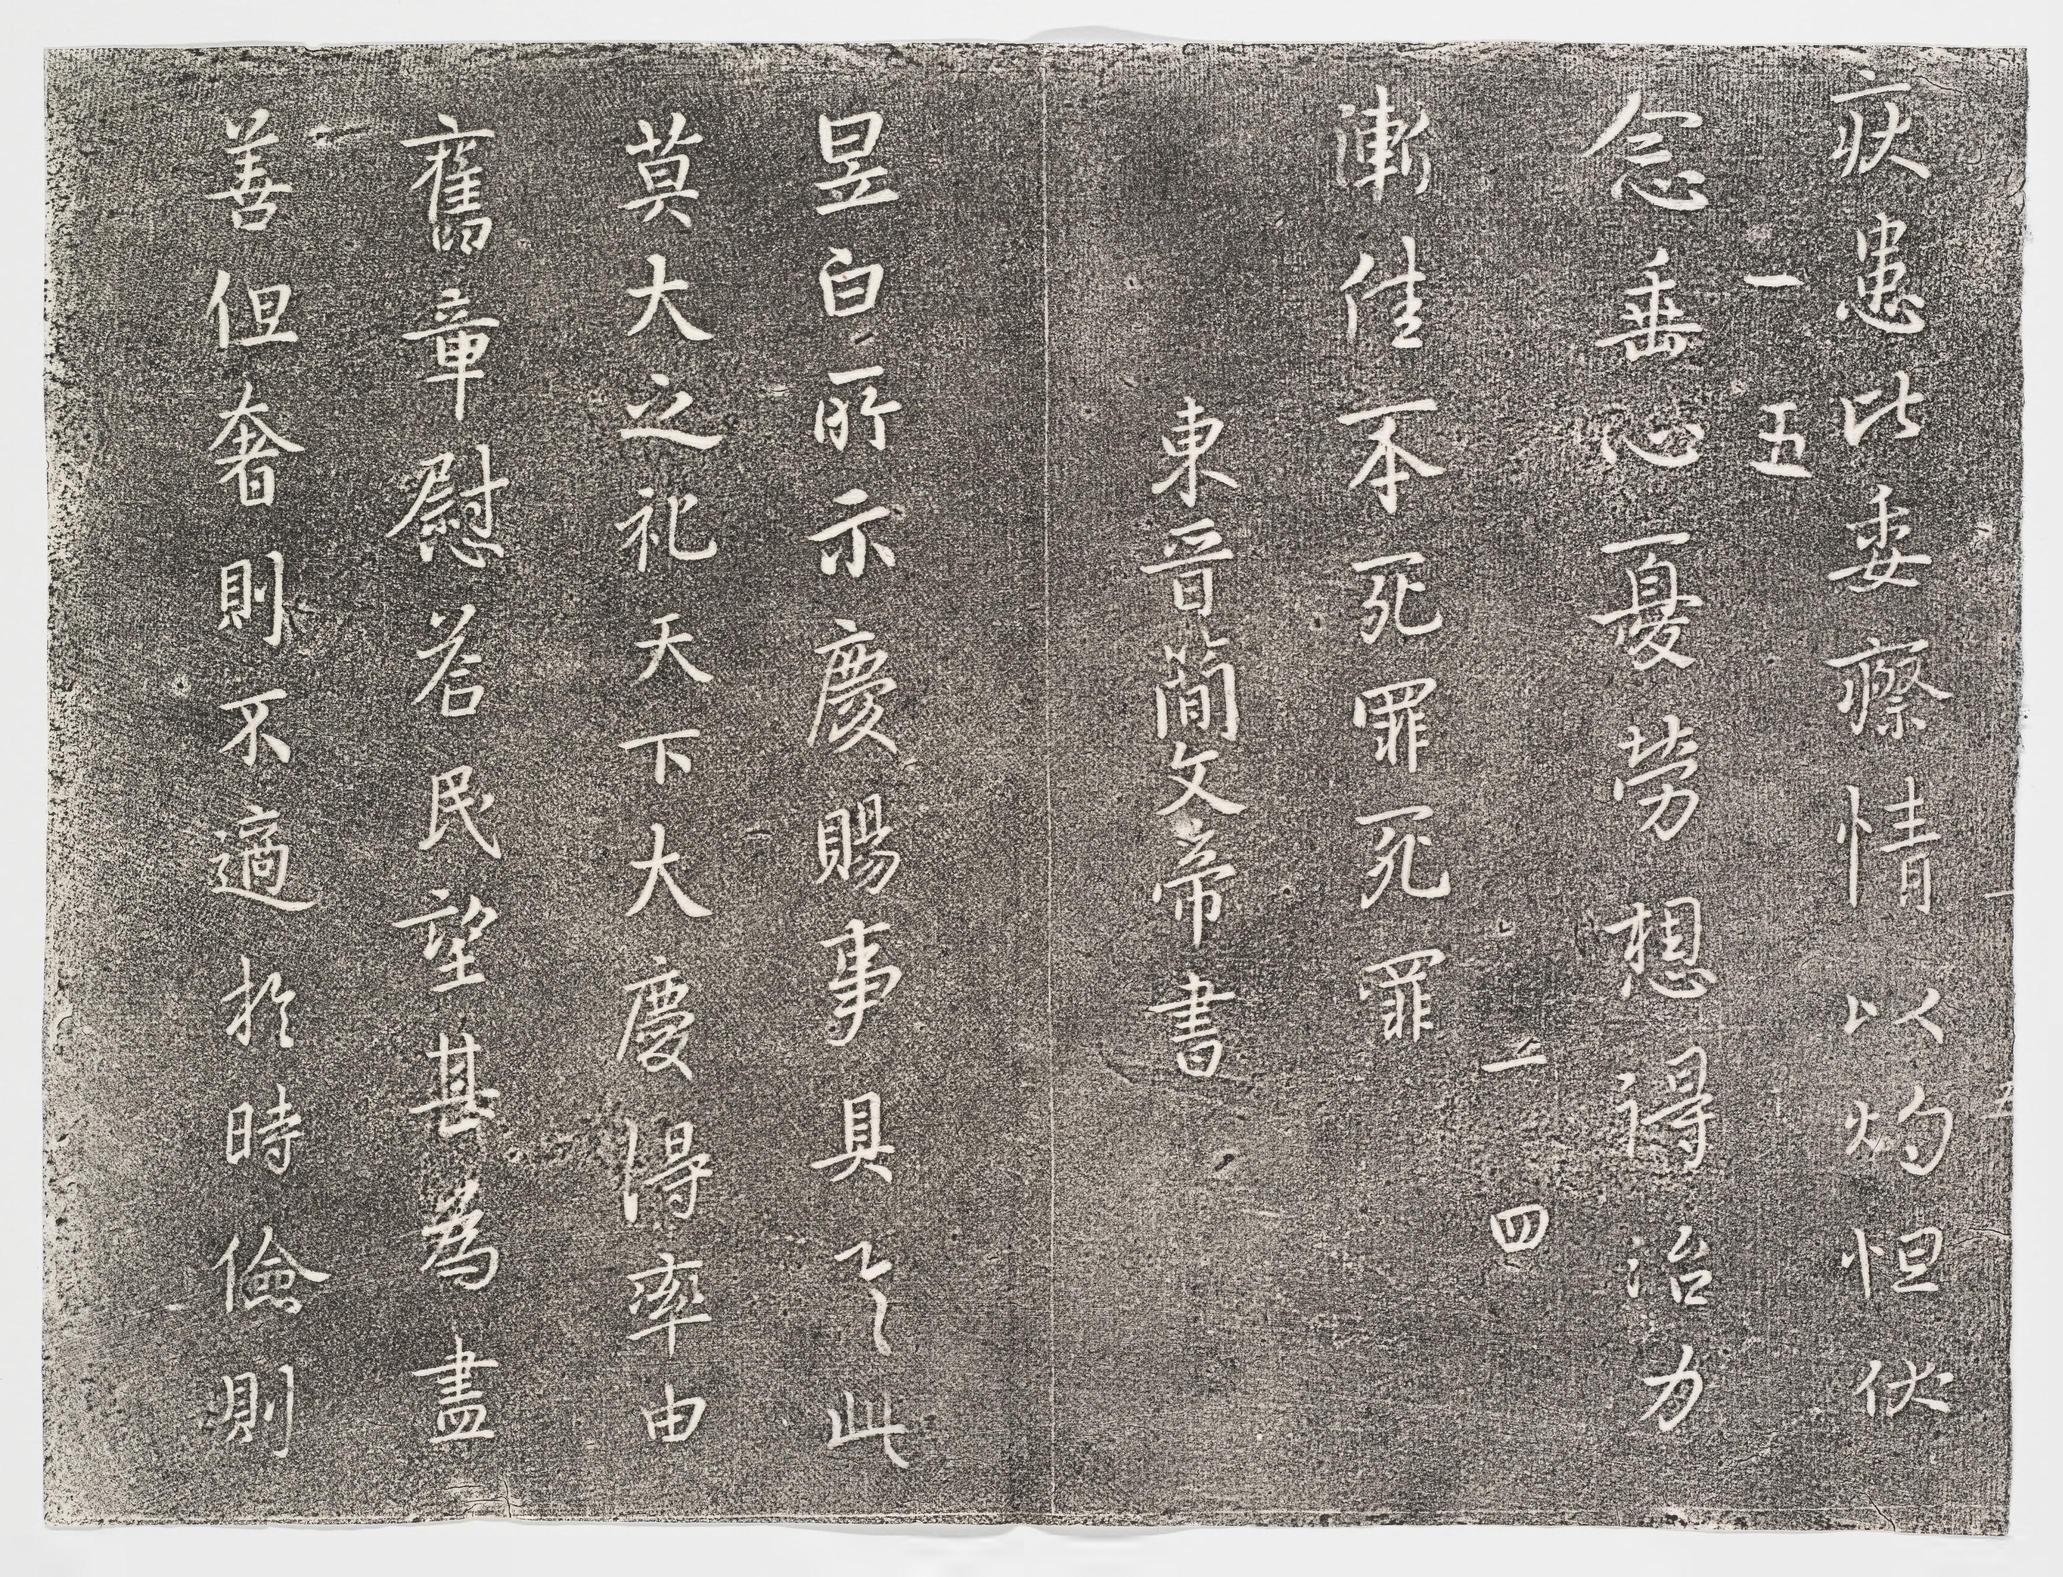 疾患比委療情以灼怛伏
一五
念垂心憂勞想得治力
一四
漸佳不死罪死罪
東晉簡文帝書
昱白所示慶賜事具之此
莫大之禮天下大慶得率由
舊章慰答民望甚為盡
善但奢則不適於時儉則